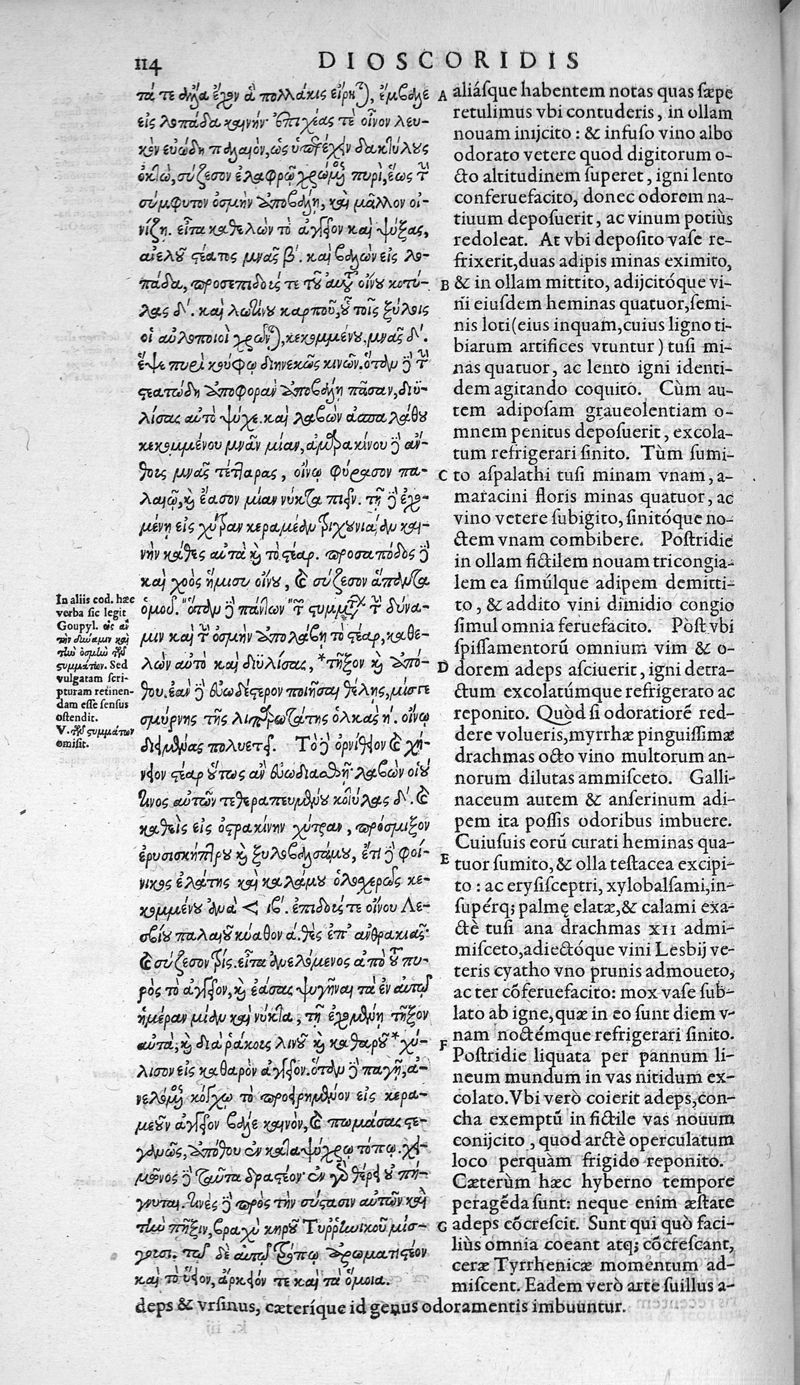 114
DIOSCORIDIS
τά τε ἄλλα ἔχον ἃ πολλάκις εἴρηται, ἔμβαλε
εἰς λοπάδα καινήν· ἐπιχέας τὲ οἶνον λευ-
κὸν εὐώδη παλαιὸν, ὡς ὑπερέχειν δακτύλους
ὀκτὼ, σύζεσον ἐλαφρῷ χρώμενος πυρὶ, ἕως τὴν
σύμφυτον ὀσμὴν ἀποβάλῃ, καὶ μᾶλλον οἰ-
νίζῃ. εἶτα καθελὼν τὸ ἀγγεῖον καὶ ψύξας,
ἀνελοῦ στέατος μνᾶς β΄. καὶ βαλὼν εἰς λο-
πάδα, προσεπιδοίς τε τοῦ αὐτοῦ οἴνου κοτύ-
λας δ΄. καὶ λωτίνου καρποῦ, οὗ τοῖς ξύλοις
οἱ αὐλοποιοὶ χρῶνται, κεκομμένου, μνᾶς δ΄.
ἕψε πυρὶ κούφῳ διηνεκῶς κινῶν. ὅταν δὲ τὴν
στεατώδη ἀποφορὰν ἀποβάλῃ πᾶσαν, διϋ-
λίσας αὐτὸ ψύχε. καὶ λαβὼν ἀσπαλάθου
κεκομμένου μνᾶν μίαν, ἀμαρακίνου δὲ ἄν-
θους μνᾶς τέτταρας, οἴνῳ φύρασον πα-
λαιῷ, καὶ ἔασον μίαν νύκτα πιεῖν. τῇ δὲ ἐχο-
μένῃ εἰς χύτραν κεραμέαν τριχουνιαίαν και-
νὴν κάθες αὐτὰ καὶ τὸ στέαρ. προσαποδοὺς δὲ
καὶ χοὸς ἥμισυ οἴνου, καὶ σύζεσον ἅπαντα
ὁμοῦ. ὅταν δὲ πάντων τῶν στυμμάτων τὴν δύνα-
μιν καὶ τὴν ὀσμὴν ἀπολάβῃ τὸ στέαρ, καθε-
λὼν αὐτὸ καὶ διϋλίσας, *τῆξον καὶ ἀπό-
θου. ἐὰν δὲ εὐωδέστερον ποιῆσαι θέλῃς, μίσγε
σμύρνης τῆς λιπαρωτάτης ὁλκὰς η΄. οἴνῳ
διειμένας πολυετεῖ. Τὸ δὲ ὀρνίθειον καὶ χή-
νειον στέαρ οὕτως ἂν εὐωδιασθῇ· λαβὼν οἵου
τινος αὐτῶν τεθεραπευμένου κοτύλας δ΄. καὶ
καθεὶς εἰς ὀστρακίνην χύτραν, πρόσμιξον
ἐρυσισκήπτρου καὶ ξυλοβαλσάμου, ἔτι δὲ φοί-
νικος ἐλάτης καὶ καλάμου ὁλοσχερῶς κε-
κομμένου ἀνὰ < ιβ΄. ἐπιδούς τε οἴνου Λε-
σβίου παλαιοῦ κύαθον ἁ. θὲς ἐπ’ ἀνθρακιᾶς·
καὶ σύζεσον τρίς. εἶτα ἀνελόμενος ἀπὸ τοῦ πυ-
ρὸς τὸ ἀγγεῖον, καὶ ἐάσας ψυγῆναι τὰ ἐν αὐτῷ
ἡμέραν μίαν καὶ νύκτα, τῇ ἐχομένῃ τῆξον
αὐτὰ, καὶ διὰ ῥάκους λινοῦ καὶ καθαροῦ *χύ-
λισον εἰς καθαρὸν ἀγγεῖον. ὅταν δὲ παγῇ, ἀ-
νελόμενος κόγχῳ τὸ προειρημένον εἰς κερα-
μεοῦν ἀγγεῖον βάλε καινὸν, καὶ πωμάσας στε-
γανῶς, ἀπόθου ἐν καταψύχρῳ τόπῳ. χει-
μῶνος δὲ ταῦτα δραστέον· ἐν γὰρ θέρει οὐ πή-
γνυται. τινὲς δὲ πρὸς τὴν σύστασιν αὐτῶν καὶ
τὴν πῆξιν, βραχὺ κηροῦ Τυρρηνικοῦ μίσ-
γουσι. τῷ δὲ αὐτῷ τρόπῳ ἀρωματιστέον
καὶ τὸ ὕειον, ἄρκειόν τε καὶ τὰ ὅμοια.
In aliis cod. hæc
verba sic legit
Goupyl.
τὴν δύναμιν καὶ
τὴν ὀσμὴν τῶν
στυμμάτων. Sed
vulgatam scri-
pturam retinen-
dam esse sensus
ostendit.
V. τῶν στυμμάτων
omisit.
A aliásque habentem notas quas sæpe
retulimus vbi contuderis, in ollam
nouam inijcito : & infuso vino albo
odorato vetere quod digitorum o-
cto altitudinem superet, igni lento
conferuefacito, donec odorem na-
tiuum deposuerit, ac vinum potiùs
redoleat. At vbi deposito vase re-
frixerit, duas adipis minas eximito,
B & in ollam mittito, adijcitóque vi-
ni eiusdem heminas quatuor, semi-
nis loti (eius inquam, cuius ligno ti-
biarum artifices vtuntur) tusi mi-
nas quatuor, ac lento igni identi-
dem agitando coquito. Cùm au-
tem adiposam graueolentiam o-
mnem penitus deposuerit, excola-
tum refrigerari sinito. Tùm sumi-
C to aspalathi tusi minam vnam, a-
maracini floris minas quatuor, ac
vino vetere subigito, sinitóque no-
ctem vnam combibere. Postridie
in ollam fictilem nouam tricongia-
lem ea simúlque adipem demitti-
to, & addito vini dimidio congio
simul omnia feruefacito. Pòst vbi
spissamentorū omnium vim & o-
D dorem adeps asciuerit, igni detra-
ctum excolatúmque refrigerato ac
reponito. Quòd si odoratiorē red-
dere volueris, myrrhæ pinguissimæ
drachmas octo vino multorum an-
norum dilutas ammisceto. Galli-
naceum autem & anserinum adi-
pem ita possis odoribus imbuere.
Cuiusuis eorū curati heminas qua-
E tuor sumito, & olla testacea excipi-
to : ac erysisceptri, xylobalsami, in-
supérq; palmę elatæ, & calami exa-
ctè tusi ana drachmas XII admi-
misceto, adiectóque vini Lesbij ve-
teris cyatho vno prunis admoueto,
ac ter cōferuefacito: mox vase sub-
lato ab igne, quæ in eo sunt diem v-
nam noctémque refrigerari sinito.
F Postridie liquata per pannum li-
neum mundum in vas nitidum ex-
colato. Vbi verò coierit adeps, con-
cha exemptū in fictile vas nouum
conijcito, quod arctè operculatum
loco perquàm frigido reponito.
Cæterùm hæc hyberno tempore
peragēda sunt: neque enim æstate
G adeps cōcrescit. Sunt qui quò faci-
liùs omnia coeant atq; cōcrescant,
ceræ Tyrrhenicæ momentum ad-
miscent. Eadem verò arte suillus a-
deps & vrsinus, cæteríque id genus odoramentis imbuuntur.